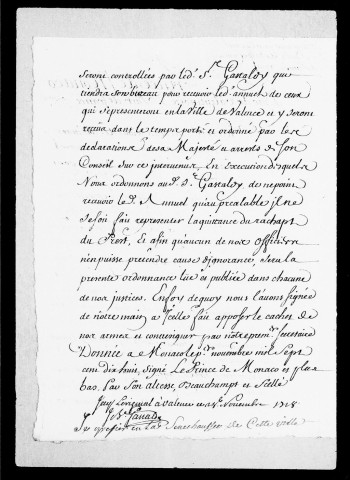 seront controllées par led. Sr. Gastaloy qui
tiendra son bureau pour recevoir led. annuel de ceux
qui se presenteront en la Ville de Valence et y seront
reçus dans le temps porté et ordonné par les
declarations de sa Majesté et arrests de son
Conseil sur ce intervenus. En Execution desquels
Nous ordonnons au d. Sr. Gastaloy de ne point
recevoir le d. Annuel qu'au prealable il ne
se soit fait representer la quittance du rachapt
du Prest, Et afin qu'aucun de nos officiers
n'en puisse pretendre cause d'ignorance, sera la
presente ordonnance lüe et publiée dans chacune
de nos justices. En foy de quoy nous l'avons signée
de notre main, a Icelle fait apposer le cachet de
nos armes et contresigner par notre premr. secretaire
Donnée a Monaco le pr. novembre mil sept
cent dix huit, signé Le Prince de Monaco et plus
bas Par Son altesse, Beauchamps et Scellé
l'original a Valence ce 18e. Novembre 1718
greffier en la Senechaussée de Cette ville